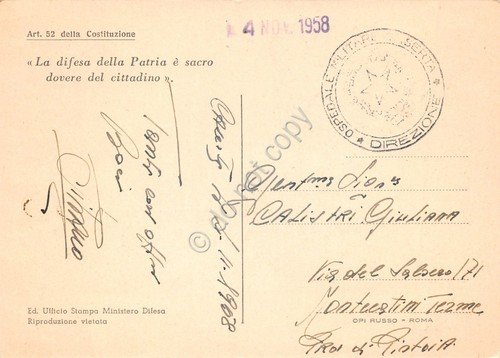 Art. 52 della Costituzione
« La difesa della Patria è sacro
dovere del cittadino ».
4 NOV. 1958
OSPEDALE MILITARE
DIREZIONE
© do not copy
Caserta
Baci
Gent.ma Sig.na
CALISTRI Giuliana
Via del Salsero 171
Montecatini Terme
Prov. di Pistoia
Ed. Ufficio Stampa Ministero Difesa
Riproduzione vietata
OPI RUSSO - ROMA